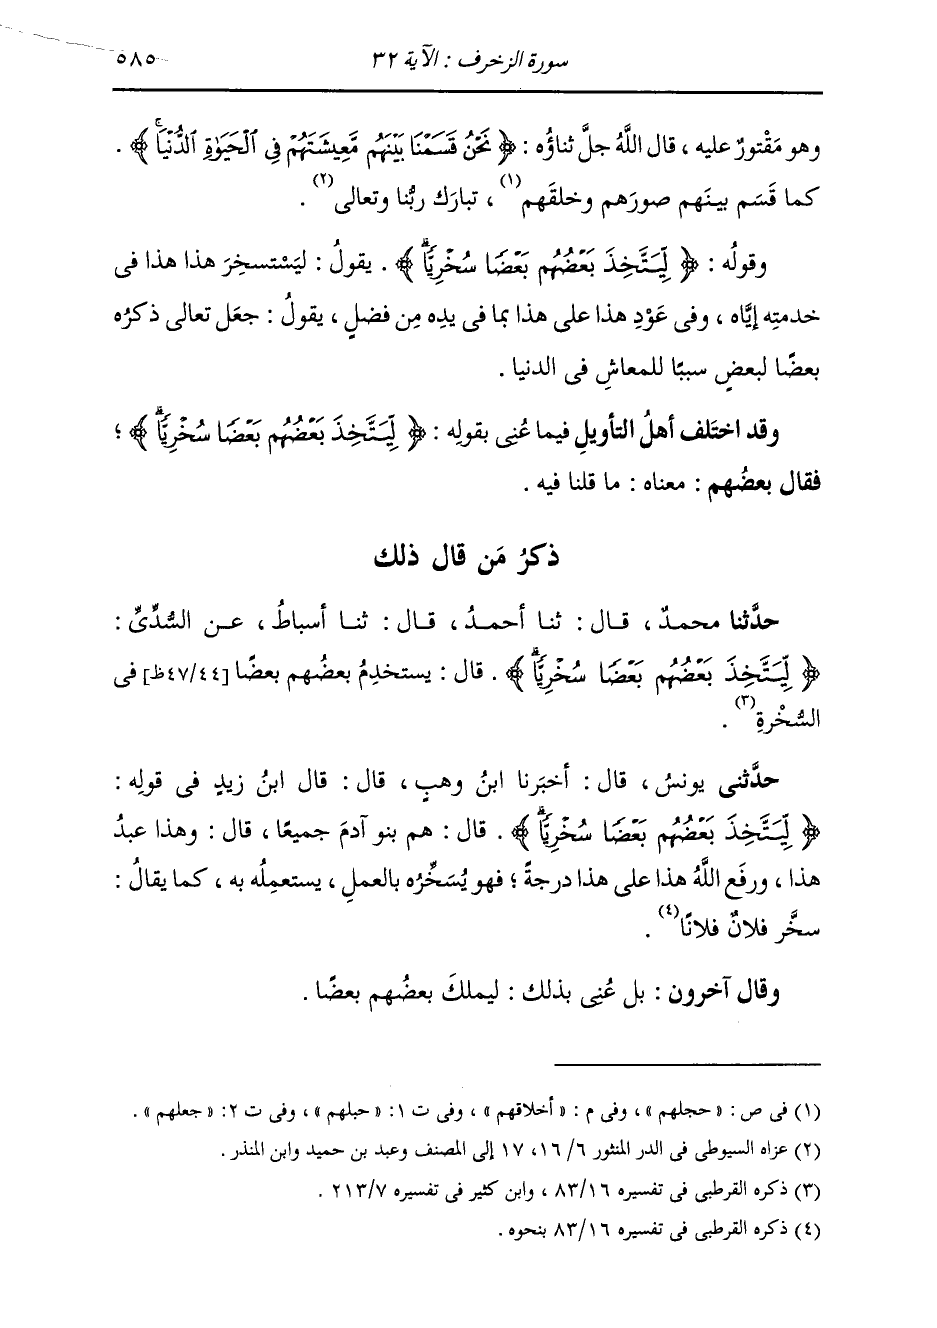 سورة الزخرف : الآية ٣٢ ٥٨٥
وهو مَقْتورٌ عليه ، قال اللَّهُ جلَّ ثناؤُه : ﴿ نَحْنُ قَسَمْنَا بَيْنَهُم مَّعِيشَتَهُمْ فِي ٱلْحَيَوٰةِ ٱلدُّنْيَاۚ ﴾ .
كما قَسَم بينَهم صورَهم وخلقَهم(١) ، تبارَك ربُّنا وتعالى(٢) .
وقولُه : ﴿ لِّيَتَّخِذَ بَعْضُهُم بَعْضًا سُخْرِيًّاۗ ﴾ . يقولُ : ليَسْتسخِرَ هذا هذا فى
خدمتِه إيَّاه ، وفى عَوْدِ هذا على هذا بما فى يدِه مِن فضلٍ ، يقولُ : جعَل تعالى ذكرُه
بعضًا لبعضٍ سببًا للمعاشِ فى الدنيا .
وقد اختَلف أهلُ التأويلِ فيما عُنِى بقولِه : ﴿ لِّيَتَّخِذَ بَعْضُهُم بَعْضًا سُخْرِيًّاۗ ﴾ ؛
فقال بعضُهم : معناه : ما قلنا فيه .
ذكرُ مَن قال ذلك
حدَّثنا محمدٌ ، قال : ثنا أحمدُ ، قال : ثنا أسباطُ ، عن السُّدِّىِّ :
﴿ لِّيَتَّخِذَ بَعْضُهُم بَعْضًا سُخْرِيًّاۗ ﴾ . قال : يستخدِمُ بعضُهم بعضًا [٤٧/٤٤ظ] فى
السُّخْرةِ(٣) .
حدَّثنى يونسُ ، قال : أخبَرنا ابنُ وهبٍ ، قال : قال ابنُ زيدٍ فى قولِه :
﴿ لِّيَتَّخِذَ بَعْضُهُم بَعْضًا سُخْرِيًّاۗ ﴾ . قال : هم بنو آدمَ جميعًا ، قال : وهذا عبدُ
هذا ، ورفَع اللَّهُ هذا على هذا درجةً ؛ فهو يُسَخِّرُه بالعملِ ، يستعمِلُه به ، كما يقالُ :
سخَّر فلانٌ فلانًا(٤) .
وقال آخرون : بل عُنِى بذلك : ليملكَ بعضُهم بعضًا .
(١) فى ص : « حجلهم » ، وفى م : « أخلاقهم » ، وفى ت ١ : « حبلهم » ، وفى ت ٢ : « جعلهم » .
(٢) عزاه السيوطى فى الدر المنثور ٦/ ١٦، ١٧ إلى المصنف وعبد بن حميد وابن المنذر .
(٣) ذكره القرطبى فى تفسيره ٨٣/١٦ ، وابن كثير فى تفسيره ٢١٣/٧ .
(٤) ذكره القرطبى فى تفسيره ٨٣/١٦ بنحوه .